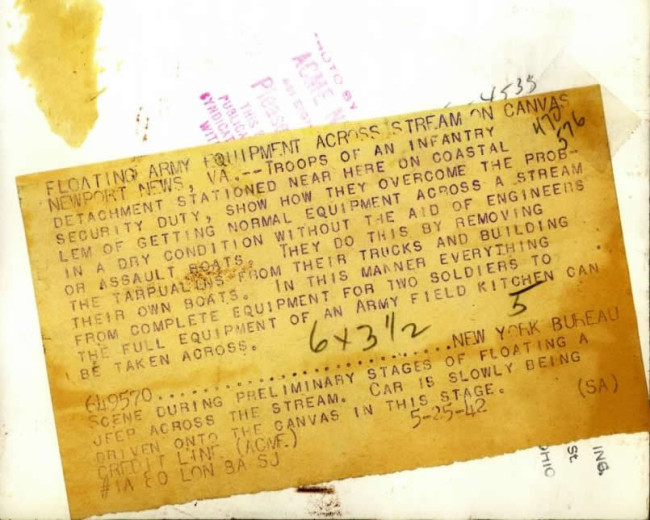 PHOTO BY
ACME
4535
470
576
FLOATING ARMY EQUIPMENT ACROSS STREAM ON CANVAS
NEWPORT NEWS, VA.--TROOPS OF AN INFANTRY
DETACHMENT STATIONED NEAR HERE ON COASTAL
SECURITY DUTY, SHOW HOW THEY OVERCOME THE PROB-
LEM OF GETTING NORMAL EQUIPMENT ACROSS A STREAM
IN A DRY CONDITION WITHOUT THE AID OF ENGINEERS
OR ASSAULT BOATS. THEY DO THIS BY REMOVING
THE TARPUALINS FROM THEIR TRUCKS AND BUILDING
THEIR OWN BOATS. IN THIS MANNER EVERYTHING
FROM COMPLETE EQUIPMENT FOR TWO SOLDIERS TO
THE FULL EQUIPMENT OF AN ARMY FIELD KITCHEN CAN
BE TAKEN ACROSS.
6 x 3 1/2
5
649570..............................NEW YORK BUREAU
SCENE DURING PRELIMINARY STAGES OF FLOATING A
JEEP ACROSS THE STREAM. CAR IS SLOWLY BEING
DRIVEN ONTO THE CANVAS IN THIS STAGE. (SA)
CREDIT LINE (ACME) 5-25-42
#1A 80 LON BA SJ
ING.
St.
OHIO